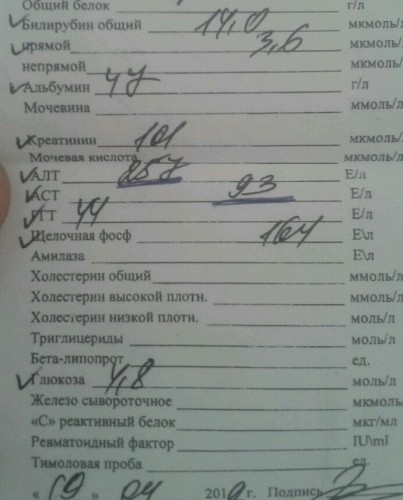 Общий белок г/л
Билирубин общий 14,0 мкмоль/
прямой 3,6 мкмоль/
непрямой мкмоль/
Альбумин 47 г/л
Мочевина ммоль/л
Креатинин 101 мкмоль/
Мочевая кислота мкмоль/л
АЛТ 257 Е/л
АСТ 93 Е/л
ГГТ 44 Е/л
Щелочная фосф 164 Е\л
Амилаза Е\л
Холестерин общий ммоль/л
Холестерин высокой плотн. ммоль/л
Холестерин низкой плотн. моль/л
Триглицериды моль/л
Бета-липопрот ед.
Глюкоза 4,8 моль/л
Железо сывороточное мкмоль
«С» реактивный белок мкг/мл
Ревматоидный фактор IU\ml
Тимоловая проба ед.
« 19 » 04 2019 г. Подпись